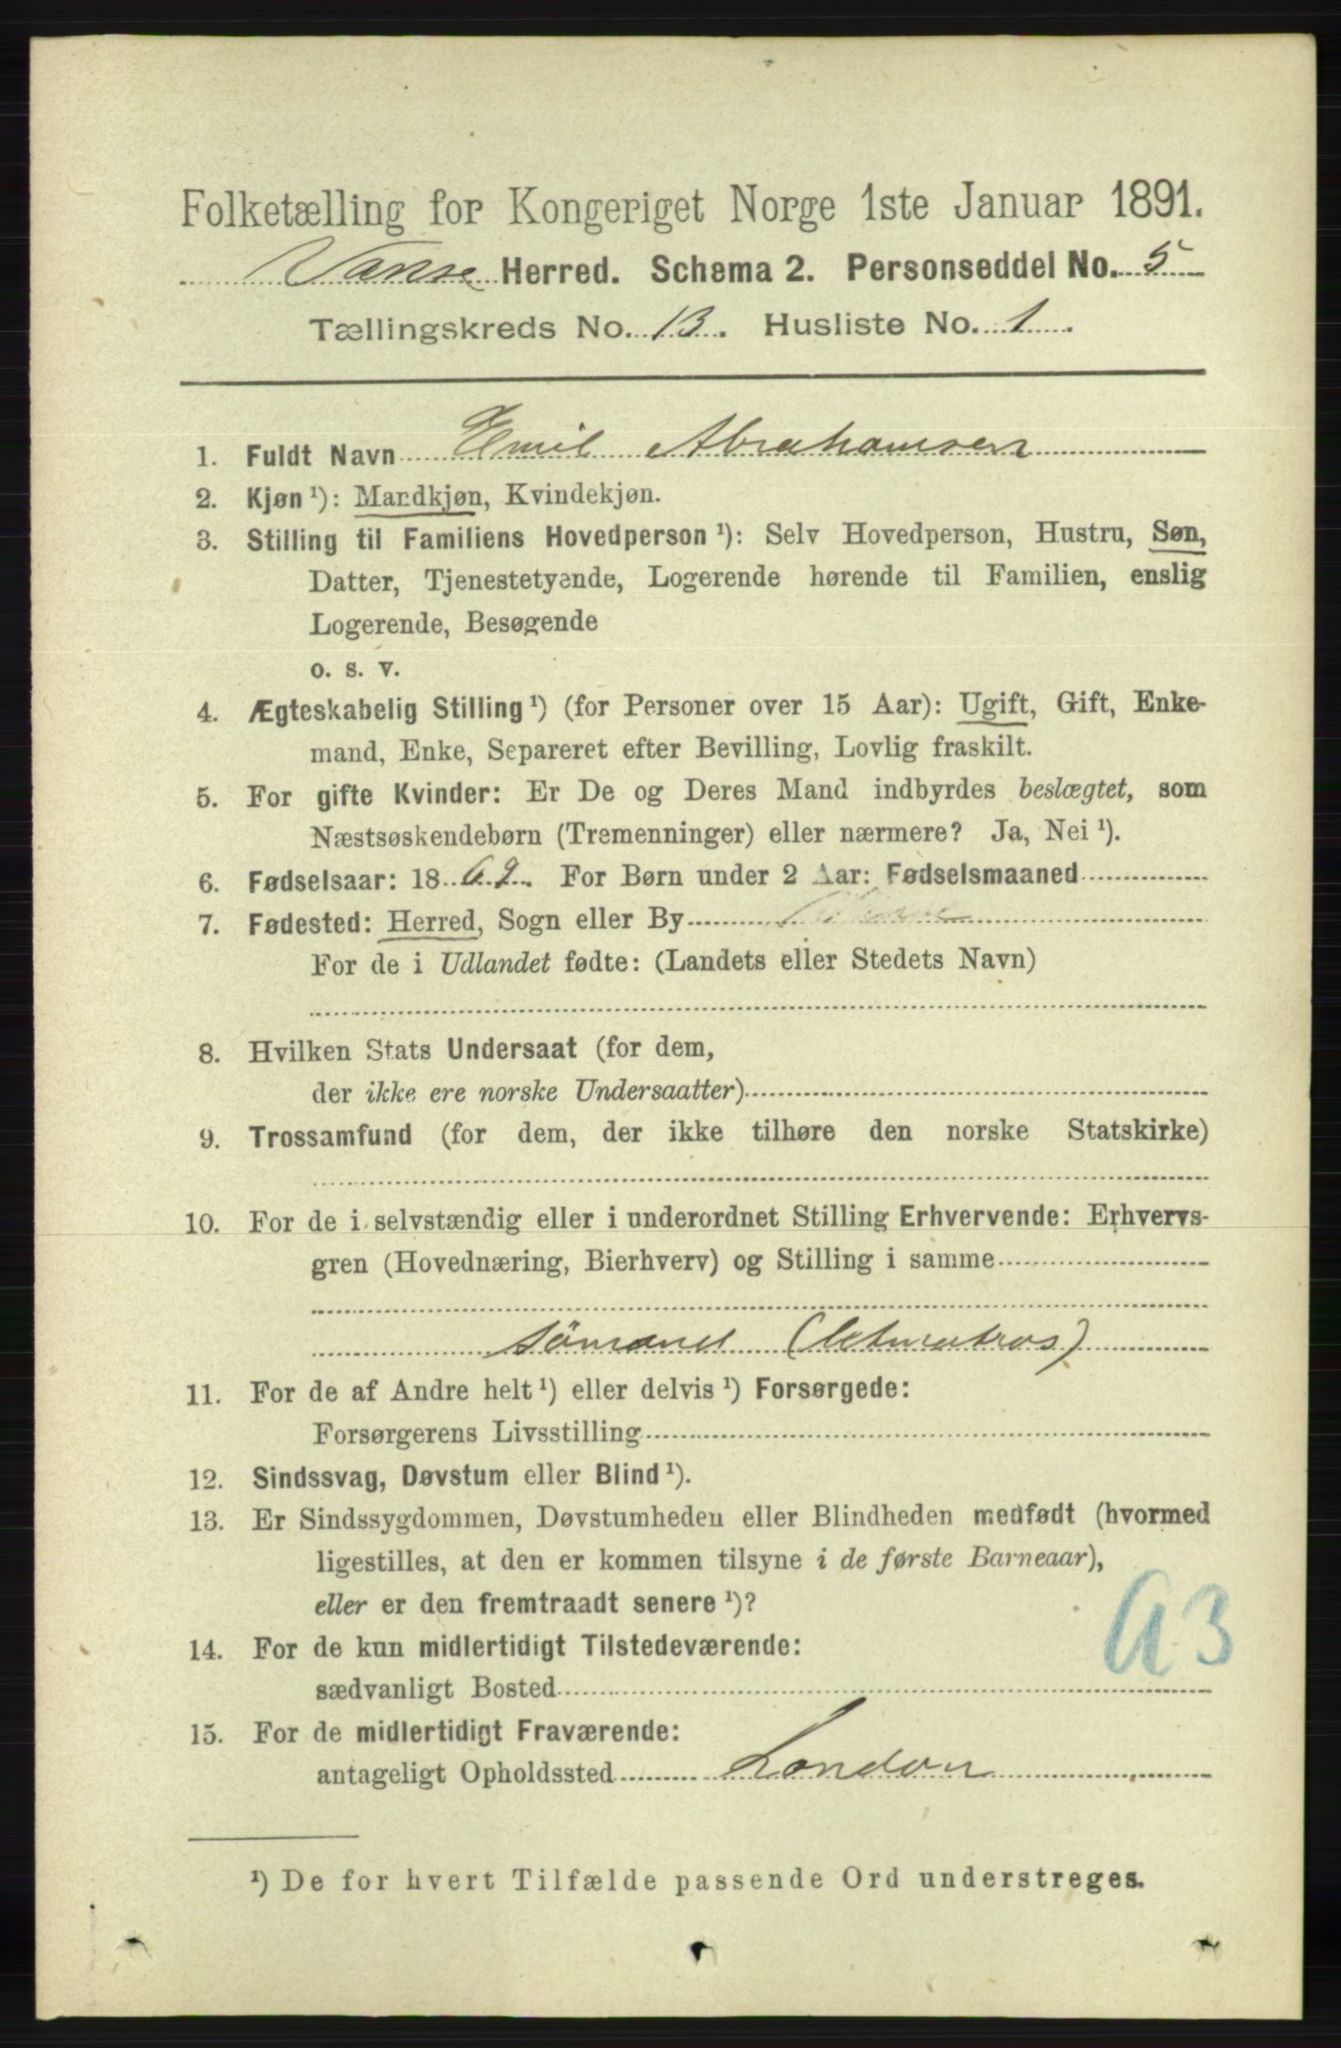 Folketælling for Kongeriget Norge 1ste Januar 1891.
Vanse Herred. Schema 2. Personseddel No. 5
Tællingskreds No. 13. Husliste No. 1.
1. Fuldt Navn Emil Abrahamsen
2. Kjøn ¹): Mandkjøn, Kvindekjøn.
3. Stilling til Familiens Hovedperson ¹): Selv Hovedperson, Hustru, Søn,
Datter, Tjenestetyende, Logerende hørende til Familien, enslig
Logerende, Besøgende
o. s. v.
4. Ægteskabelig Stilling ¹) (for Personer over 15 Aar): Ugift, Gift, Enke-
mand, Enke, Separeret efter Bevilling, Lovlig fraskilt.
5. For gifte Kvinder: Er De og Deres Mand indbyrdes beslægtet, som
Næstsøskendebørn (Tremenninger) eller nærmere? Ja, Nei ¹).
6. Fødselsaar: 1869. For Børn under 2 Aar: Fødselsmaaned
7. Fødested: Herred, Sogn eller By
For de i Udlandet fødte: (Landets eller Stedets Navn)
8. Hvilken Stats Undersaat (for dem,
der ikke ere norske Undersaatter)
9. Trossamfund (for dem, der ikke tilhøre den norske Statskirke)
10. For de i selvstændig eller i underordnet Stilling Erhvervende: Erhvervs-
gren (Hovednæring, Bierhverv) og Stilling i samme
sömand (letmatros)
11. For de af Andre helt ¹) eller delvis ¹) Forsørgede:
Forsørgerens Livsstilling
12. Sindssvag, Døvstum eller Blind ¹).
13. Er Sindssygdommen, Døvstumheden eller Blindheden medfødt (hvormed
ligestilles, at den er kommen tilsyne i de første Barneaar),
eller er den fremtraadt senere ¹)?
14. For de kun midlertidigt Tilstedeværende:
sædvanligt Bosted
15. For de midlertidigt Fraværende:
antageligt Opholdssted London
¹) De for hvert Tilfælde passende Ord understreges.